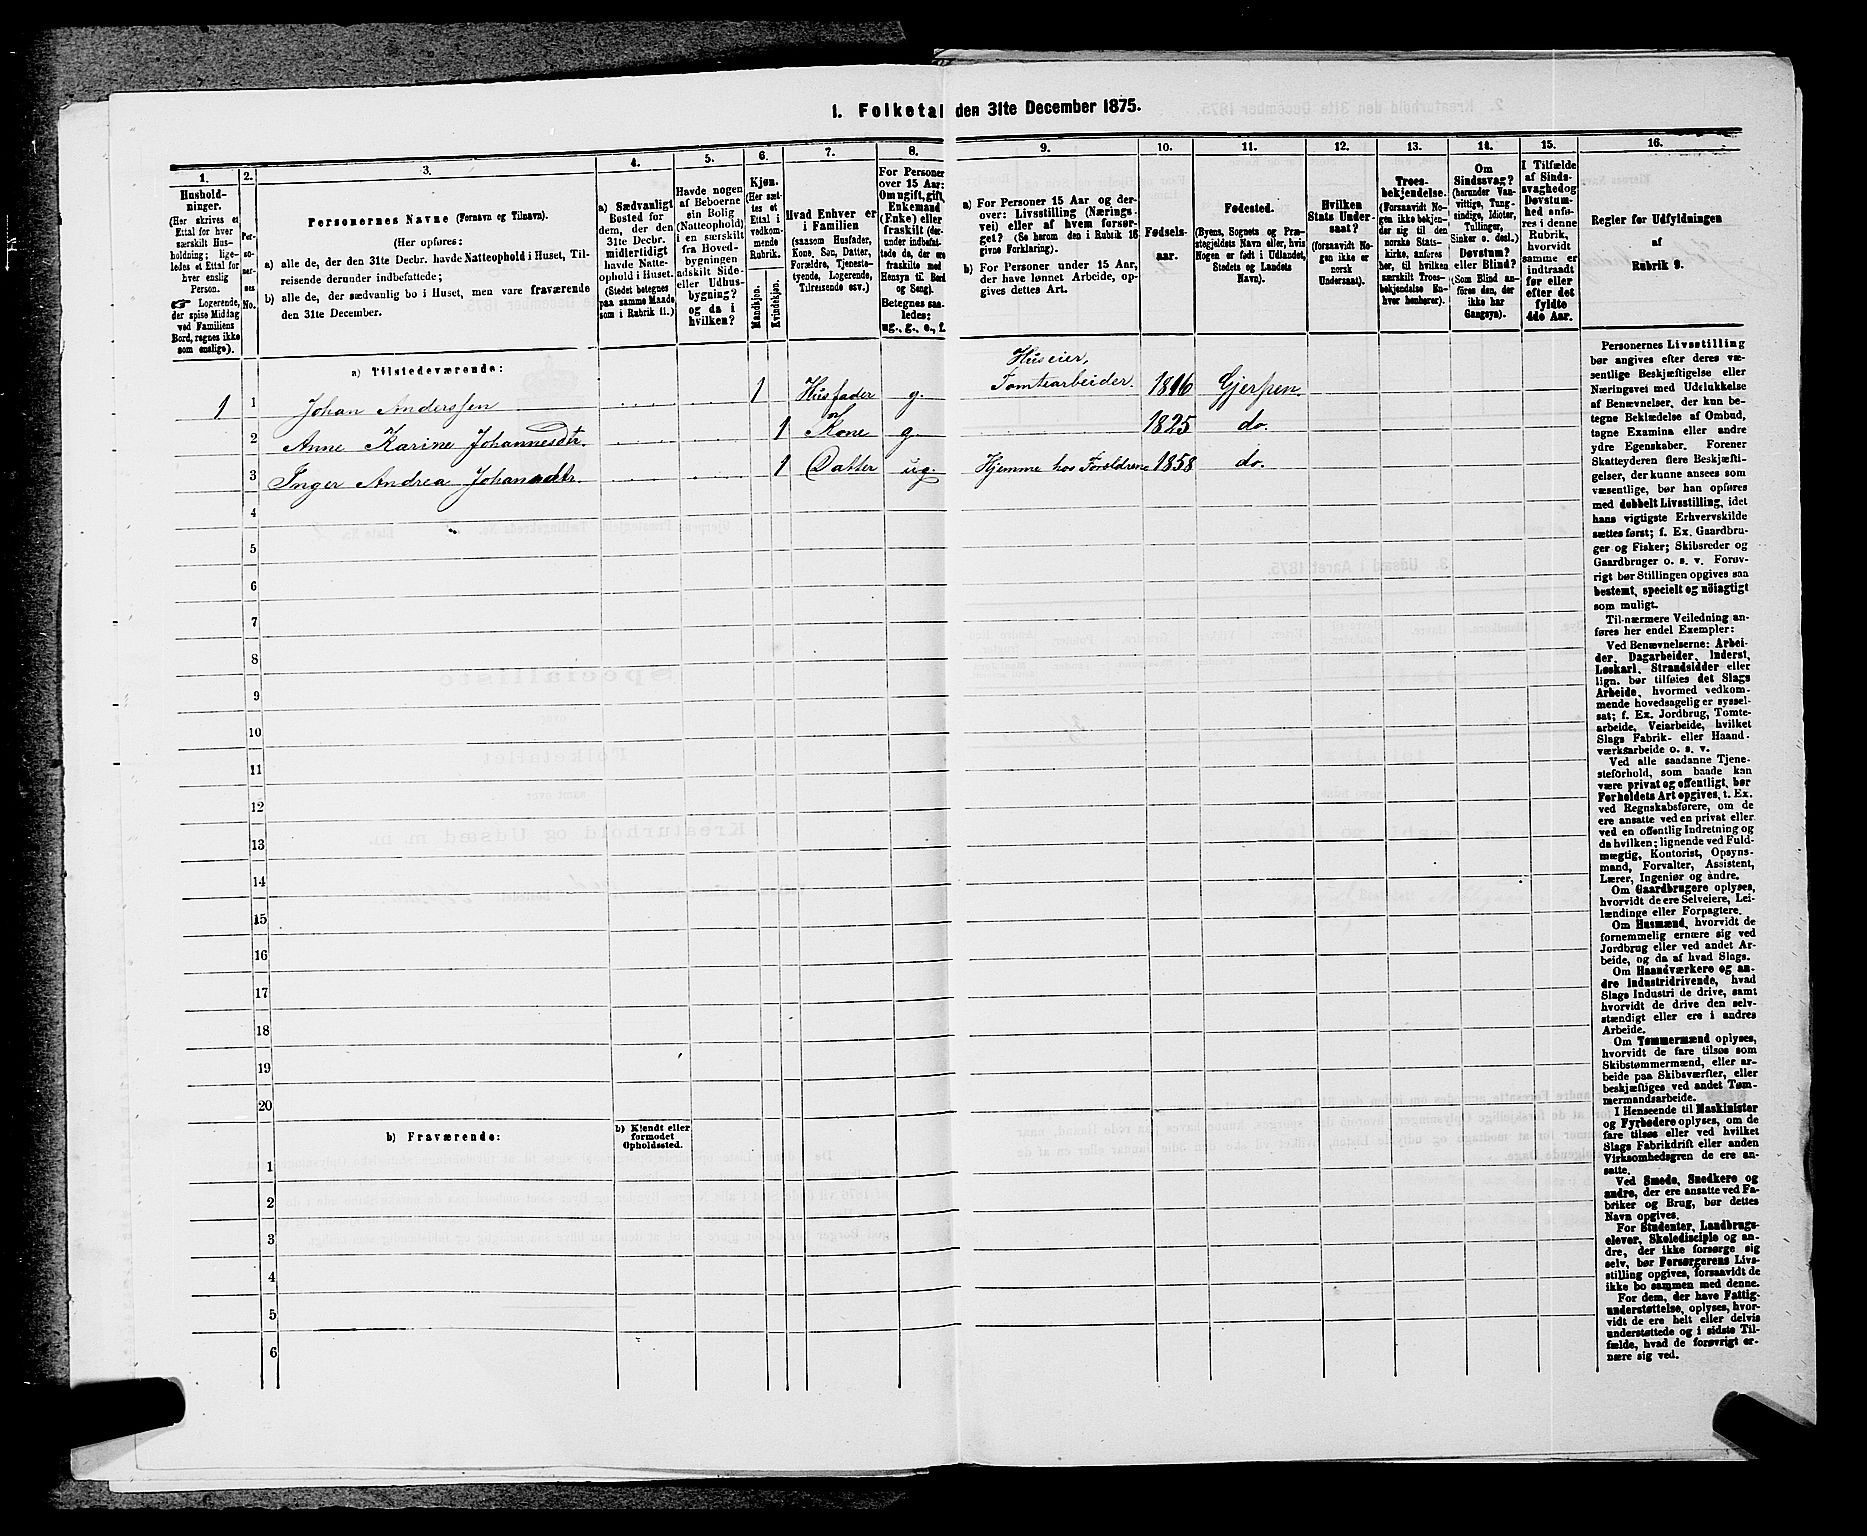 1. Folketal den 31te December 1875.
1.
Hushold-
ninger.
(Her skrives et
Ettal for hver
særskilt Hus-
holdning; lige-
ledes et Ettal for
hver enslig
Person.
☞ Logerende,
der spise Middag
ved Familiens
Bord, regnes ikke
som enslige).
2.
Per-
so-
ner-
nes
No.
3.
Personernes Navne (Fornavn og Tilnavn).
(Her opføres:
a) alle de, der den 31te Decbr. havde Natteophold i Huset, Til-
reisende derunder indbefattede;
b) alle de, der sædvanlig bo i Huset, men vare fraværende
den 31te December.
4.
a) Sædvanligt
Bosted for
dem, der den
31te Decbr.
midlertidigt
havde Natte-
ophold i Huset.
(Stedet betegnes
paa samme Maade
som i Rubrik 11.)
5.
Havde nogen
af Beboerne
sin Bolig
(Natteophold)
i en særskilt
fra Hoved-
bygningen
adskilt Side-
eller Udhus-
bygning?
og da i
hvilken?
6.
Kjøn.
(Her sæt-
tes et
Ettal i
vedkom-
mende
Rubrik.
Mandkjøn.
Kvindekjøn.
7.
Hvad Enhver er
i Familien
(saasom Husfader,
Kone, Søn, Datter,
Forældre, Tjeneste-
tyende, Logerende,
Tilreisende osv.)
8.
For Personer
over 15 Aar:
Om ugift, gift,
Enkemand
(Enke) eller
fraskilt (der-
under indbefat-
tede de, der ere
fraskilte med
Hensyn til Bord
og Seng).
Betegnes saa-
ledes:
ug., g., e., f.
9.
a) For Personer 15 Aar og der-
over: Livsstilling (Nærings-
vei) eller af hvem forsør-
get? (Se herom den i Rubrik 16
givne Forklaring).
b) For Personer under 15 Aar,
der have lønnet Arbeide, op-
gives dettes Art.
10.
Fødsels-
aar.
11.
Fødested.
(Byens, Sognets og Præ-
stegjeldets Navn eller, hvis
Nogen er født i Udlandet,
Stedets og Landets
Navn).
12.
Hvilken
Stats Under-
saat?
(forsaavidt No-
gen ikke er
norsk
Undersaat).
13.
Troes-
bekjendelse.
(Forsaavidt No-
gen ikke bekjen-
der sig til den
norske Stats-
kirke, anføres
her, til hvilken
særskilt Troes-
bekjendelse En-
hver henhører).
14.
Om
Sindssvag?
(herunder Van-
vittige, Tung-
sindige, Idioter,
Tullinger,
Sinker o. desl.)
Døvstum?
eller Blind?
(Som Blind an-
føres den, der
ikke har
Gangsyn).
15.
I Tilfælde
af Sinds-
svaghed og
Døvstum-
hed anfø-
res i denne
Rubrik,
hvorvidt
samme er
indtraadt
før eller
efter det
fyldte
4de Aar.
16.
Regler for Udfyldningen
af
Rubrik 9.
a) Tilstedeværende:
1 1 Johan Anderssen 1 Husfader g. Huseier, Tomtearbeider. 1816 Gjerpen.
2 Anne Karine Johannesdtr. 1 Kone g. 1825 do.
3 Inger Andrea Johansdtr. 1 Datter ug. Hjemme hos Forældrene 1858 do.
4
5
6
7
8
9
10
11
12
13
14
15
16
17
18
19
20
b) Fraværende:
b) Kjendt eller
formodet
Opholdssted.
1
2
3
4
5
6
Personernes Livsstilling
bør angives efter deres væ-
sentlige Beskjæftigelse eller
Næringsvei med Udelukkelse
af Benævnelser, der kun be-
tegne Beklædelse af Ombud,
tagne Examina eller andre
ydre Egenskaber. Forener
Skatteyderen flere Beskjæfti-
gelser, der kunne ansees som
væsentlige, bør han opføres
med dobbelt Livsstilling, idet
hans vigtigste Erhvervskilde
sættes først; f. Ex. Gaardbru-
ger og Fisker; Skibsreder og
Gaardbruger o. s. v. Forøv-
rigt bør Stillingen opgives saa
bestemt, specielt og nøiagtigt
som muligt.
Til nærmere Veiledning an-
føres her endel Exempler:
Ved Benævnelserne: Arbei-
der, Dagarbeider, Inderst,
Løskarl, Strandsidder eller
lign. bør tilføies det Slags
Arbeide, hvormed vedkom-
mende hovedsagelig er syssel-
sat; f. Ex. Jordbrug, Tomte-
arbeide, Veiarbeide, hvilket
Slags Fabrik- eller Haand-
værksarbeide o. s. v.
Ved alle saadanne Tjene-
steforhold, som baade kan
være privat og offentligt, bør
Forholdets Art opgives, t. Ex.
ved Regnskabsførere, om de
ere ansatte ved en privat eller
ved en offentlig Indretning og
da hvilken; lignende ved Fuld-
mægtig, Kontorist, Opsyns-
mand, Forvalter, Assistent,
Lærer, Ingeniør og andre.
Om Gaardbrugere oplyses,
hvorvidt de ere Selveiere, Lei-
lændinge eller Forpagtere.
Om Husmænd, hvorvidt de
fornemmelig ernære sig ved
Jordbrug eller ved andet Ar-
beide, og da af hvad Slags.
Om Haandværkere og an-
dre Industridrivende, hvad
Slags Industri de drive, samt
hvorvidt de drive den selv-
stændigt eller ere i andres
Arbeide.
Om Tømmermænd oplyses,
hvorvidt de fare tilsøs som
Skibstømmermænd, eller ar-
beide paa Skibsværfter, eller
beskjæftiges ved andet Tøm-
mermandsarbeide.
I Henseende til Maskinister
og Fyrbødere oplyses, om de
fare tilsøs eller ved hvilket
Slags Fabrikdrift eller anden
Virksomhedsgren de ere an-
satte.
Ved Smede, Snedkere og
andre, der ere ansatte ved Fa-
briker og Brug, bør dettes
Navn opgives.
For Studenter, Landbrugs-
elever, Skoledisciple og an-
dre, der ikke forsørge sig
selv, bør Forsørgerens Livs-
stilling opgives, forsaavidt de
ikke bo sammen med denne.
For dem, der have Fattig-
understøttelse, oplyses, hvor-
vidt de ere helt eller delvis
understøttede og i sidste Til-
fælde, hvad de forøvrigt er-
nære sig ved.